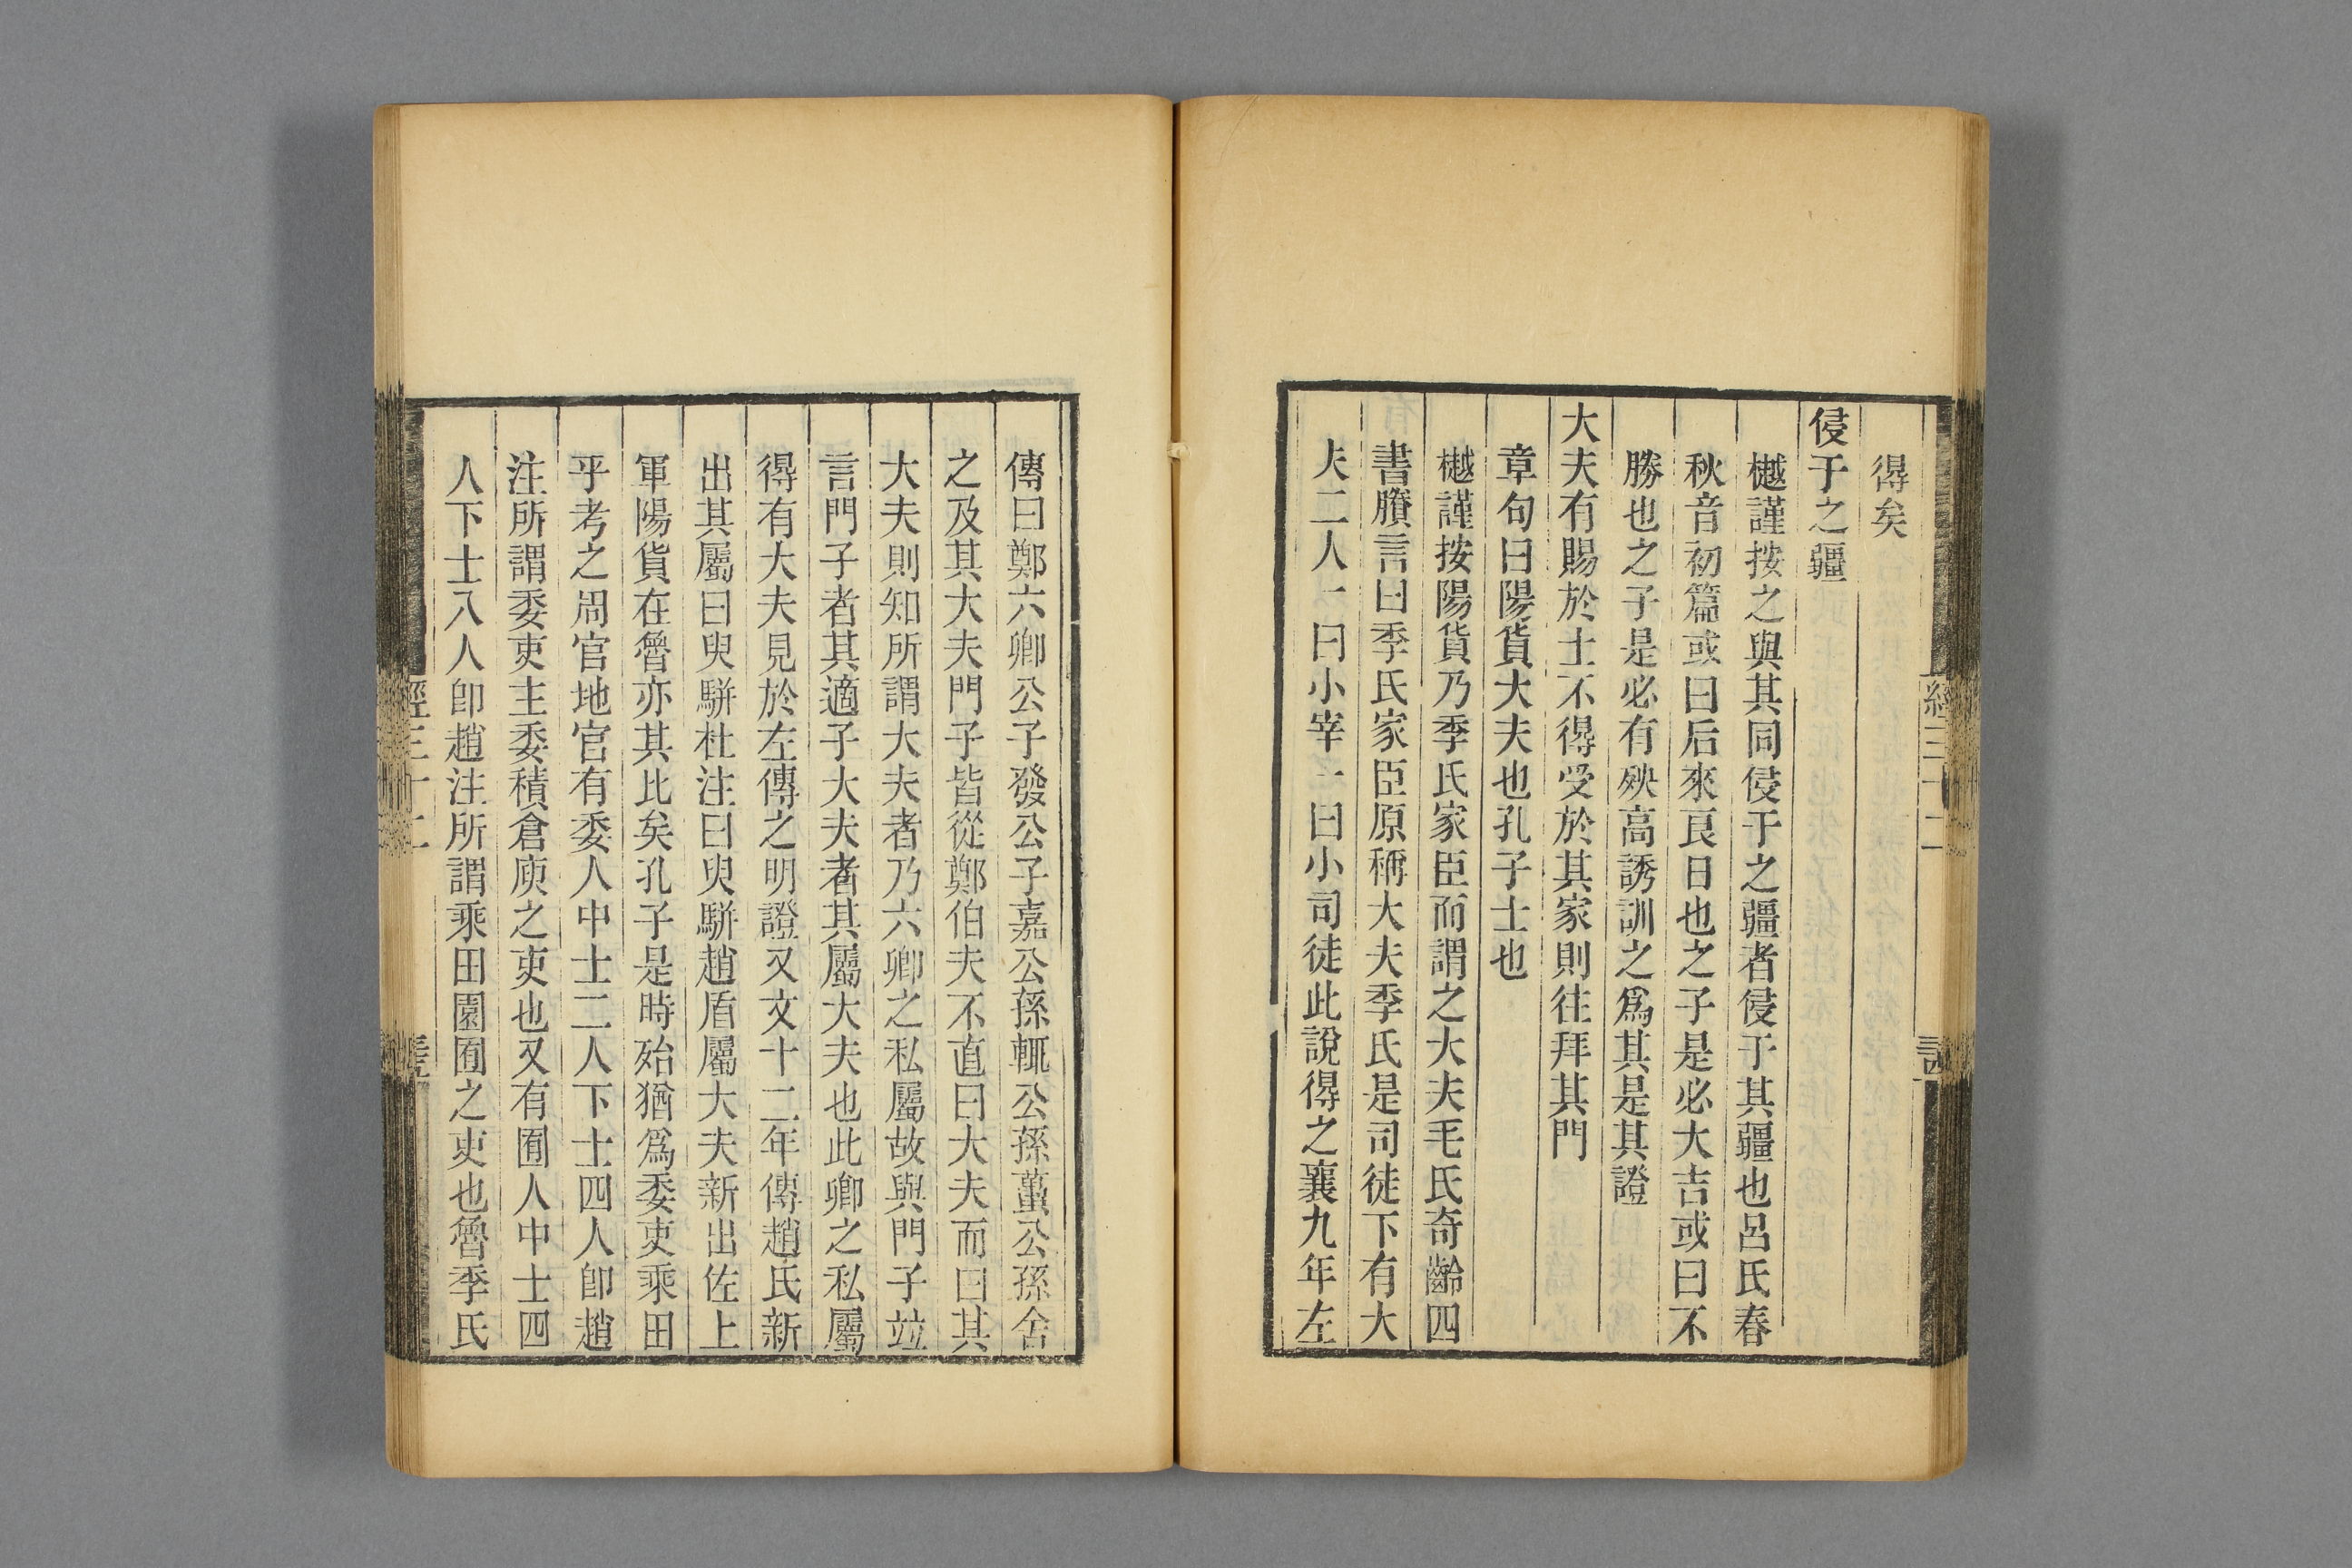 得矣
侵于之疆
樾謹按之與其同侵于之疆者侵于其疆也呂氏春
秋音初篇或曰后來良日也之子是必大吉或曰不
勝也之子是必有殃高誘訓之爲其是其證
大夫有賜於士不得受於其家則往拜其門
章句曰陽貨大夫也孔子士也
樾謹按陽貨乃季氏家臣而謂之大夫毛氏奇齡四
書賸言曰季氏家臣原稱大夫季氏是司徒下有大
夫二人一曰小宰一曰小司徒此說得之襄九年左
經三十二
傳曰鄭六卿公子發公子嘉公孫輒公孫蠆公孫舍
之及其大夫門子皆從鄭伯夫不直曰大夫而曰其
大夫則知所謂大夫者乃六卿之私屬故與門子竝
言門子者其適子大夫者其屬大夫也此卿之私屬
得有大夫見於左傳之明證又文十二年傳趙氏新
出其屬曰臾駢杜注曰臾駢趙盾屬大夫新出佐上
軍陽貨在魯亦其比矣孔子是時殆猶爲委吏乘田
乎考之周官地官有委人中士二人下士四人卽趙
注所謂委吏主委積倉庾之吏也又有囿人中士四
人下士八人卽趙注所謂乘田園囿之吏也魯季氏
經三十二